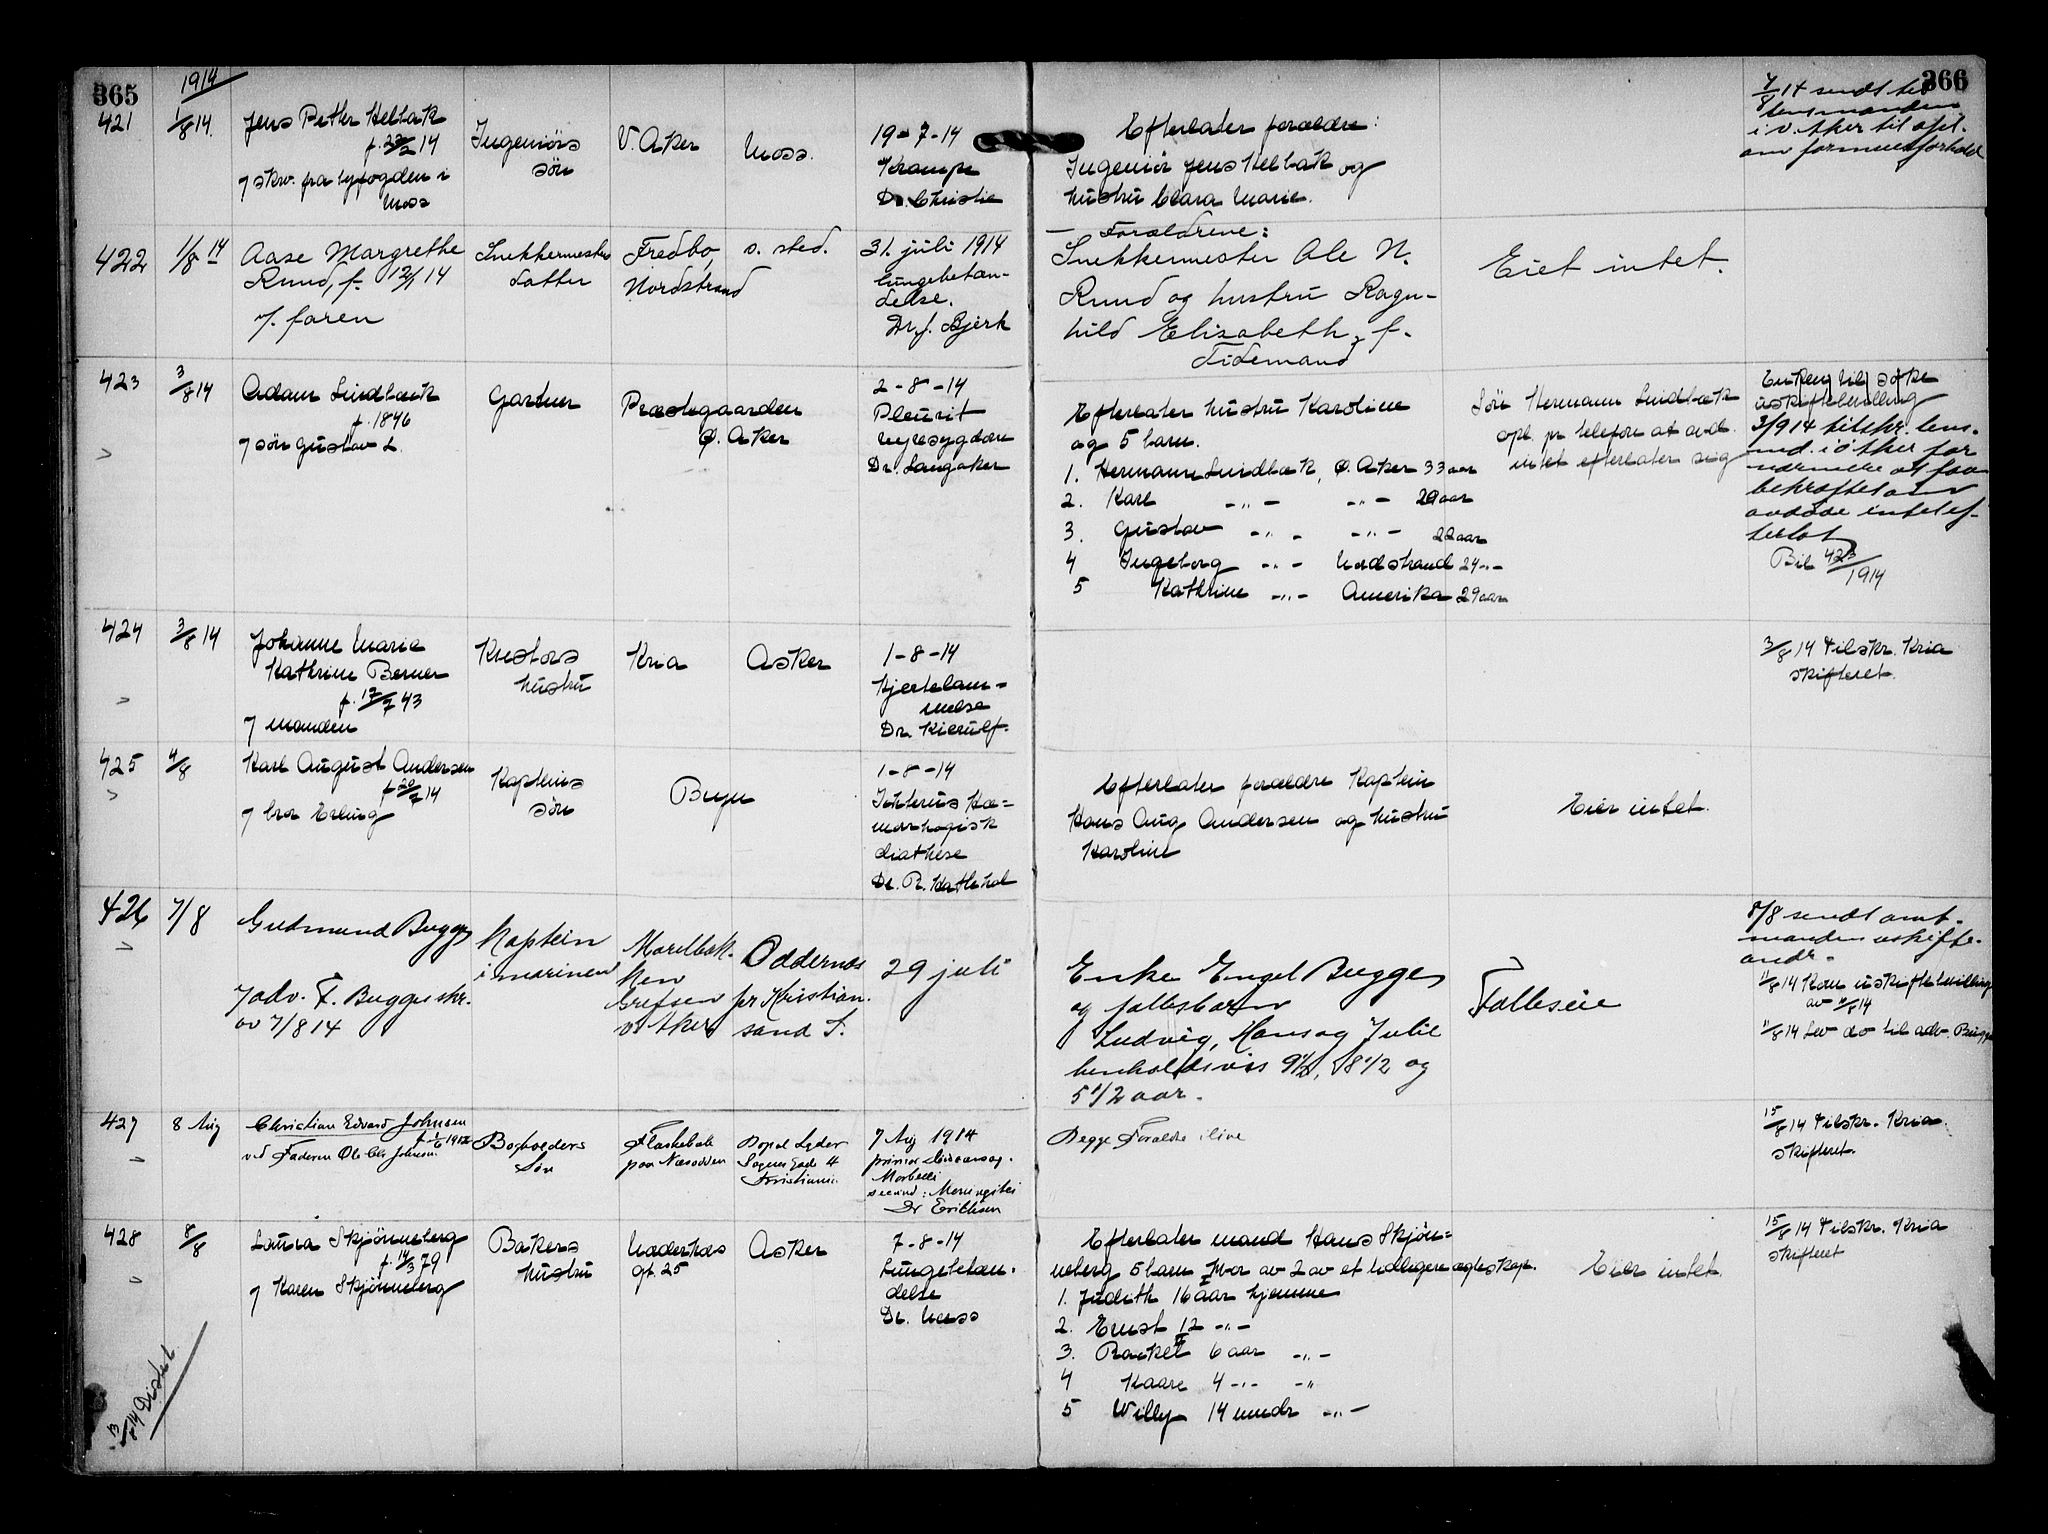 365
1914
366
421
1/8 14.
Jens Petter Helbæk
f. 22/2 14
7 skr. fra byfogden i
Moss
Ingeniörs
sön
V. Aker
Moss.
19-7-14
Krampe
Dr. Christie
Efterlater forældre:
Ingeniör Jens Helbæk og
hustru Clara Marie.
7/8 14 sendt til
lensmanden
i v. Aker til opl.
om formuesforhold
422
1/8 14
Aase Margrethe
Ruud, f. 12/1 14
v. faren
Snekkermesters
datter
Fredbo
Nordstrand
s. sted.
31. juli 1914
lungebetæn-
delse.
Dr. J. Bjerk
Forældrene:
Snekkermester Ole N.
Ruud og hustru Ragn-
hild Elisabeth, f.
Tidemand
Eiet intet.
423
3/8 14
Adam Lindbæk
f. 1846
7 sön Gustav L.
Gartner
Præstegaarden
Ø. Aker
2-8-14
Pleurit
nyresygdom
Dr. Langaker
Efterlater hustru Karoline
og 5 barn.
1. Hermann Lindbæk, Ø. Aker 33 aar
2. Karl -"- -"- 20 aar
3. Gustav -"- -"- 22 aar
4 Ingeborg -"- Nordstrand 24 -"-
5 Kathrine -"- Amerika 29 aar
Sön Hermann Lindbæk
opl. pr telefon at avd.
intet efterlater sig
Enken vil søke
uskiftebevilling
3/9 14 tilskr. lens-
md. i ö. Aker for
nærmere at faa
bekræftet om
avdøde intet ef-
terlot
Bil 423/1914
424
3/8 14
Johanne Marie
Kathrine Berner
f. 17/7 43
7 manden
hustru
Kria
Asker
1-8-14
Hjertelam-
melse
Dr. Kierulf.
3/8 14 Tilskr. Kria
skifteret.
425
4/8
Karl August Andersen
f 20/7 14
7 bror Erling
Kapteins
sön
1-8-14
Ikterus Hæ-
morhagisk
diathese
Efterlater forældre Kaptein
Hans Aug Andersen og hustru
Karoline
Eier intet.
426
7/8
Gudmund Bugge
7 adv. F. Bugges skr.
av 7/8 14
Kaptein
i marinen
Morelbak-
ken
Grefsen
v. Aker
Oddernes
pr Kristian-
sand S.
29 juli
Enke Engel Bugge
og fællesbarn
Ludvig, Hans og Julie
henholdsvis 9 1/2, 8 1/2 og
5 1/2 aar.
Fælleseie
8/8 sendt amt-
manden uskifte-
andr.
11/8 14 Kom uskiftebevilling
av 10/8 14
11/8 14 Lev do til adv. Bugge
427
8 Aug
Christian Edvard Johnsen
ved Faderen Johnsen
Bogholders
Søn
Flaskebæk
paa Næsodden
Bopæl Lyder
Sagens Gade 4
Kristiania
7 Aug 1914
Morbilli
secund: Meningitis
Dr Erichsen
Begge Forældre ilive
15/8 14 Tilskr. Kria
skifteret.
428
8/8
Laura Skjönneberg
f. 14/3 79
7 Karen Skjönneberg
Bakers
hustru
gt. 25
Asker
7-8-14
Lungebetæn-
delse
Dr. Næss
Efterlater mand Hans Skjön-
neberg 5 barn hvor av 2 av et tidligere egteskap.
1. Judith 16 aar hjemme
2. Ernst 12 -"-
3. Rakel 6 aar -"-
4 Kaare 4 -"- -"-
5 Willy 14 mndr -"-
Eier intet.
15/8 14 Tilskr. Kria
skifteret
13/8 14